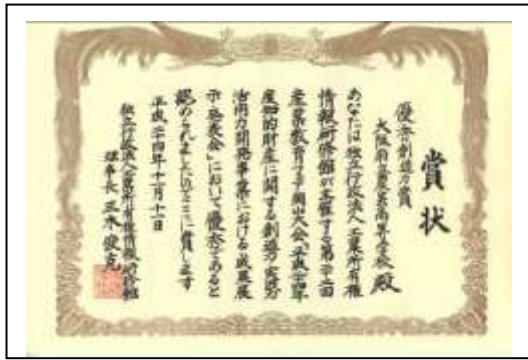 賞状
優秀創造力賞
大阪府立農芸高等学校 殿
あなたは 独立行政法人 工業所有権
情報・研修館が主催する第二十二回
産業教育フェア岡山大会「平成二十四年
度知的財産に関する創造力・実践力・
活用力開発事業における成果展
示・発表会」において優秀であると
認められましたのでここに賞します
平成二十四年十一月十一日
独立行政法人工業所有権情報・研修館
理事長 三木俊克